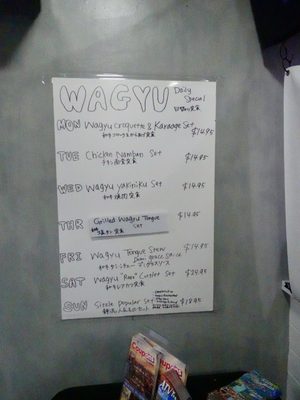 WAGYU
Daily
Special
日替わり定食
MON Wagyu Croquette & Karaage Set $14.95
和牛コロッケ&から揚げ定食
TUE Chicken Namban Set $14.95
チキン南蛮定食
WED Wagyu yakiniku Set $14.95
和牛焼肉定食
THR Grilled Wagyu Tongue $14.95
SET
塩タン定食
FRI Wagyu Tongue Stew $14.95
Demi grace sauce
和牛タンシチュー デミグラスソース
SAT Wagyu "Rare" Cutlet Set
和牛レアカツ定食
SUN Sizzle Popular Set $18.95